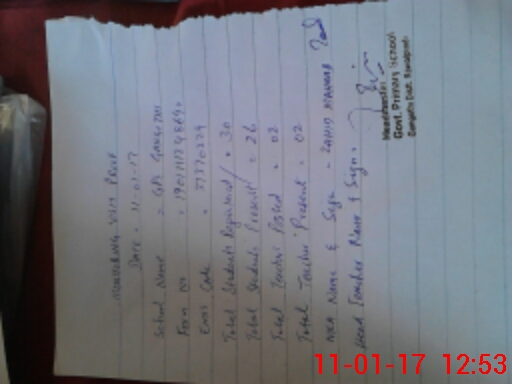 MONITORING VISIT PROOF
Date = 11-01-17
School Name = GPS
Form no =
Emis Code = 37370229
Total Students Registered = 30
Total Students Present = 26
Total Teacher Posted = 02
Total Teacher Present = 02
MEA Name & Sign -
Head Teacher Name & Sign =
Headmaster
Govt. Primary School
11-01-17 12:53